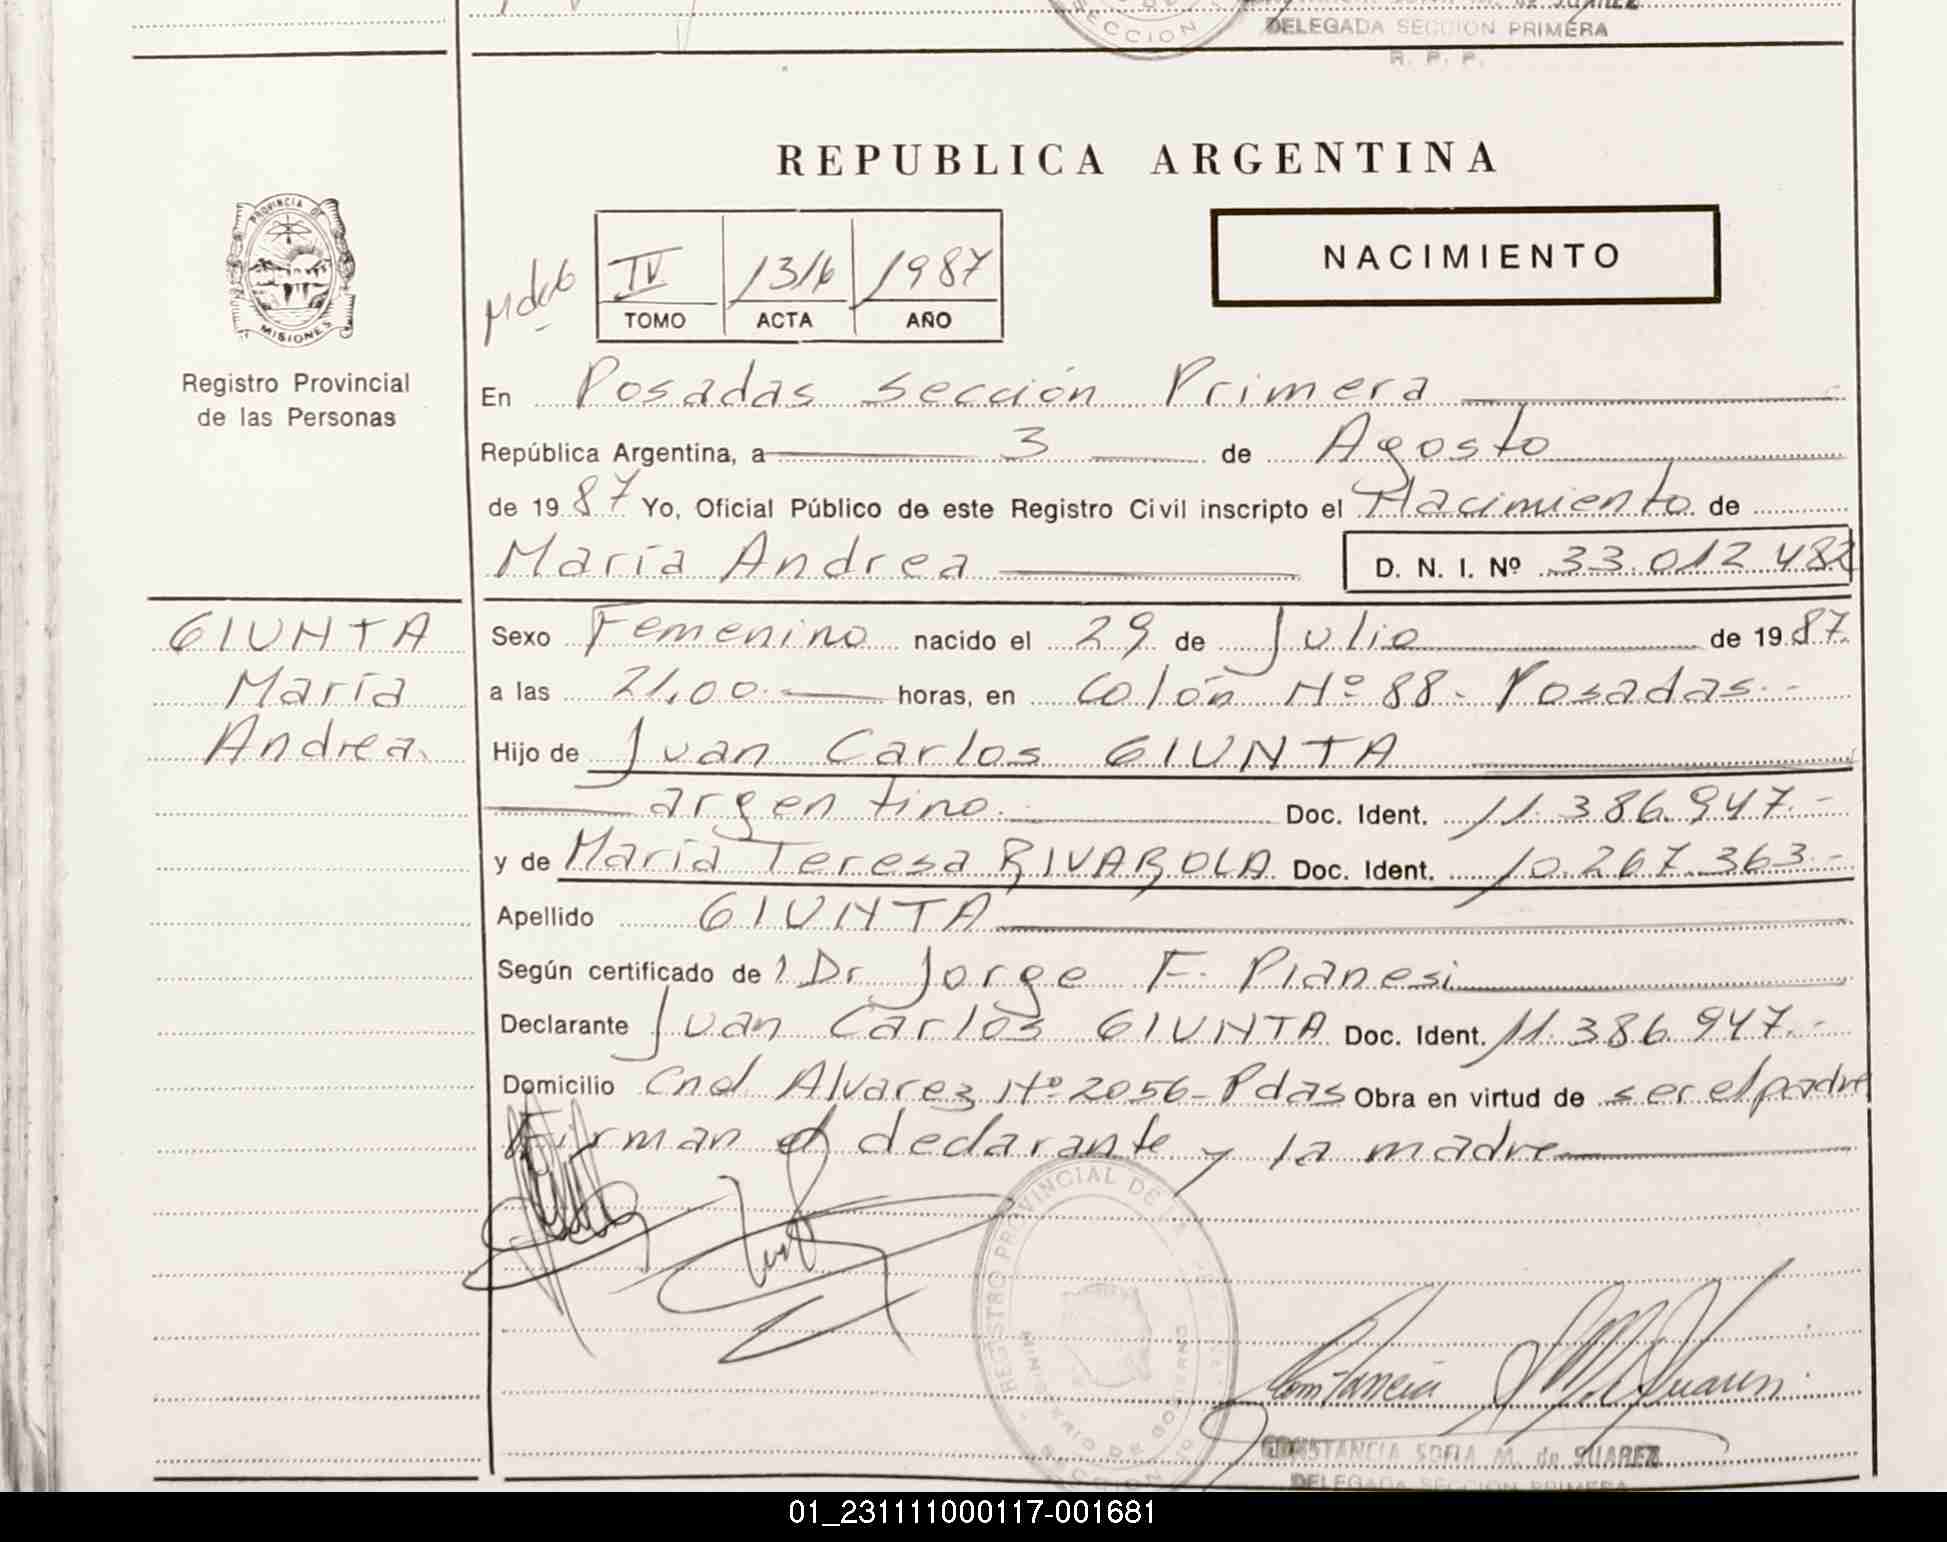 SECCION
DELEGADA SECCION PRIMERA
R. P. P.
REPUBLICA ARGENTINA
PROVINCIA DE
MISIONES
Registro Provincial
de las Personas
IV 1316 1987
TOMO ACTA AÑO
NACIMIENTO
En Posadas Sección Primera
República Argentina, a 3 de Agosto
de 1987 Yo, Oficial Público de este Registro Civil inscripto el Nacimiento de
María Andrea D. N. I. Nº 33.012.482
GIUNTA
María
Andrea
Sexo Femenino nacido el 29 de Julio de 1987
a las 21,00.- horas, en Colón Nº 88- Posadas.-
Hijo de Juan Carlos GIUNTA
argentino. Doc. Ident. 11.386.947.-
y de María Teresa RIVAROLA Doc. Ident. 10.267.363.-
Apellido GIUNTA
Según certificado de Dr. Jorge F. Pianesi
Declarante Juan Carlos GIUNTA Doc. Ident. 11.386.947.-
Domicilio Cnel Alvarez Nº 2056-Pdas Obra en virtud de ser el padre
Firman el declarante y la madre
REGISTRO PROVINCIAL DE LA
MINISTERIO DE GOBIERNO
SECCION
Constancia S M. de Suarez
CONSTANCIA SOFIA M. de SUAREZ
DELEGADA SECCION PRIMERA
01_231111000117-001681